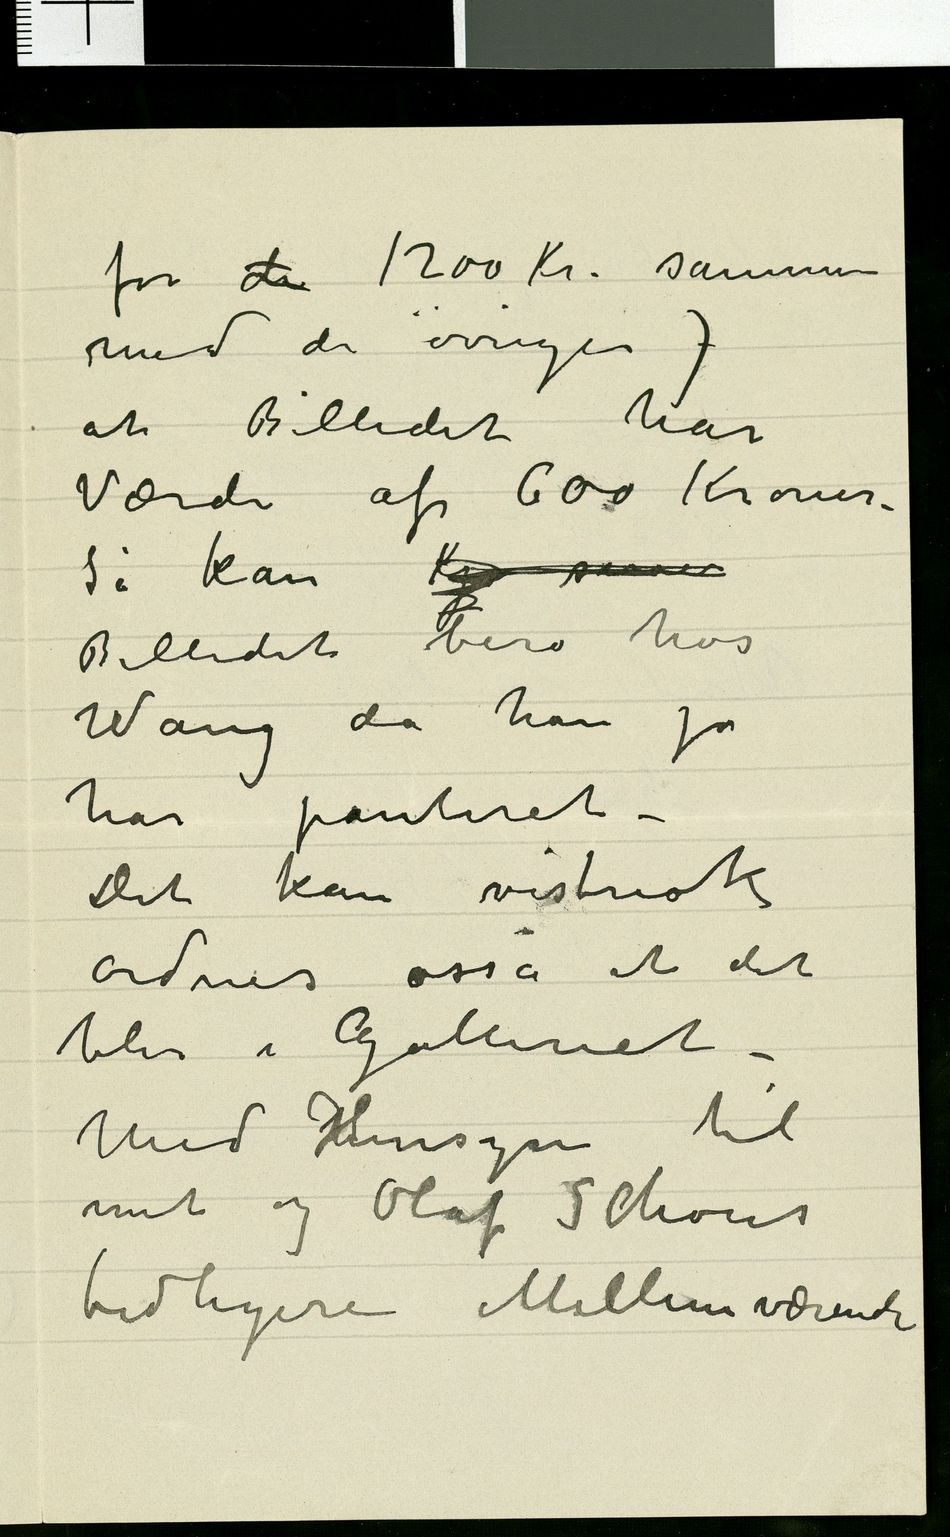 for de 1200 Kr. sammen
med de övrige)
at Billedet har
Værdi af 600 Kroner.
Så kan
Billedet bero hos
Wang da han jo
har panteret –
Det kan vistnok
ordnes osså at det
blir i Galleriet –
Med Hensyn til
mit og Olaf Schous
tidligere Mellemværende